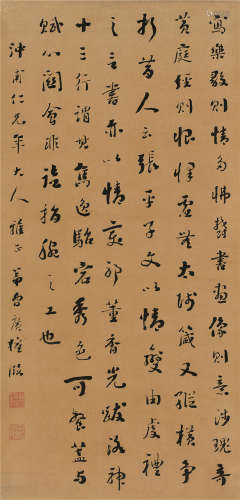 寫樂毅則情多怫鬱書畫像則意涉瑰奇
黃庭經則怡懌虛無太師箴又縱橫爭
折昔人云張平子文以情變由虔禮
之言書亦以情變耶董香光跋洛神
十三行謂其雋逸駘宕秀色可餐蓋與
賦心闔會非指腕之工也
沖甫仁兄年大人雅正 弟曾廣